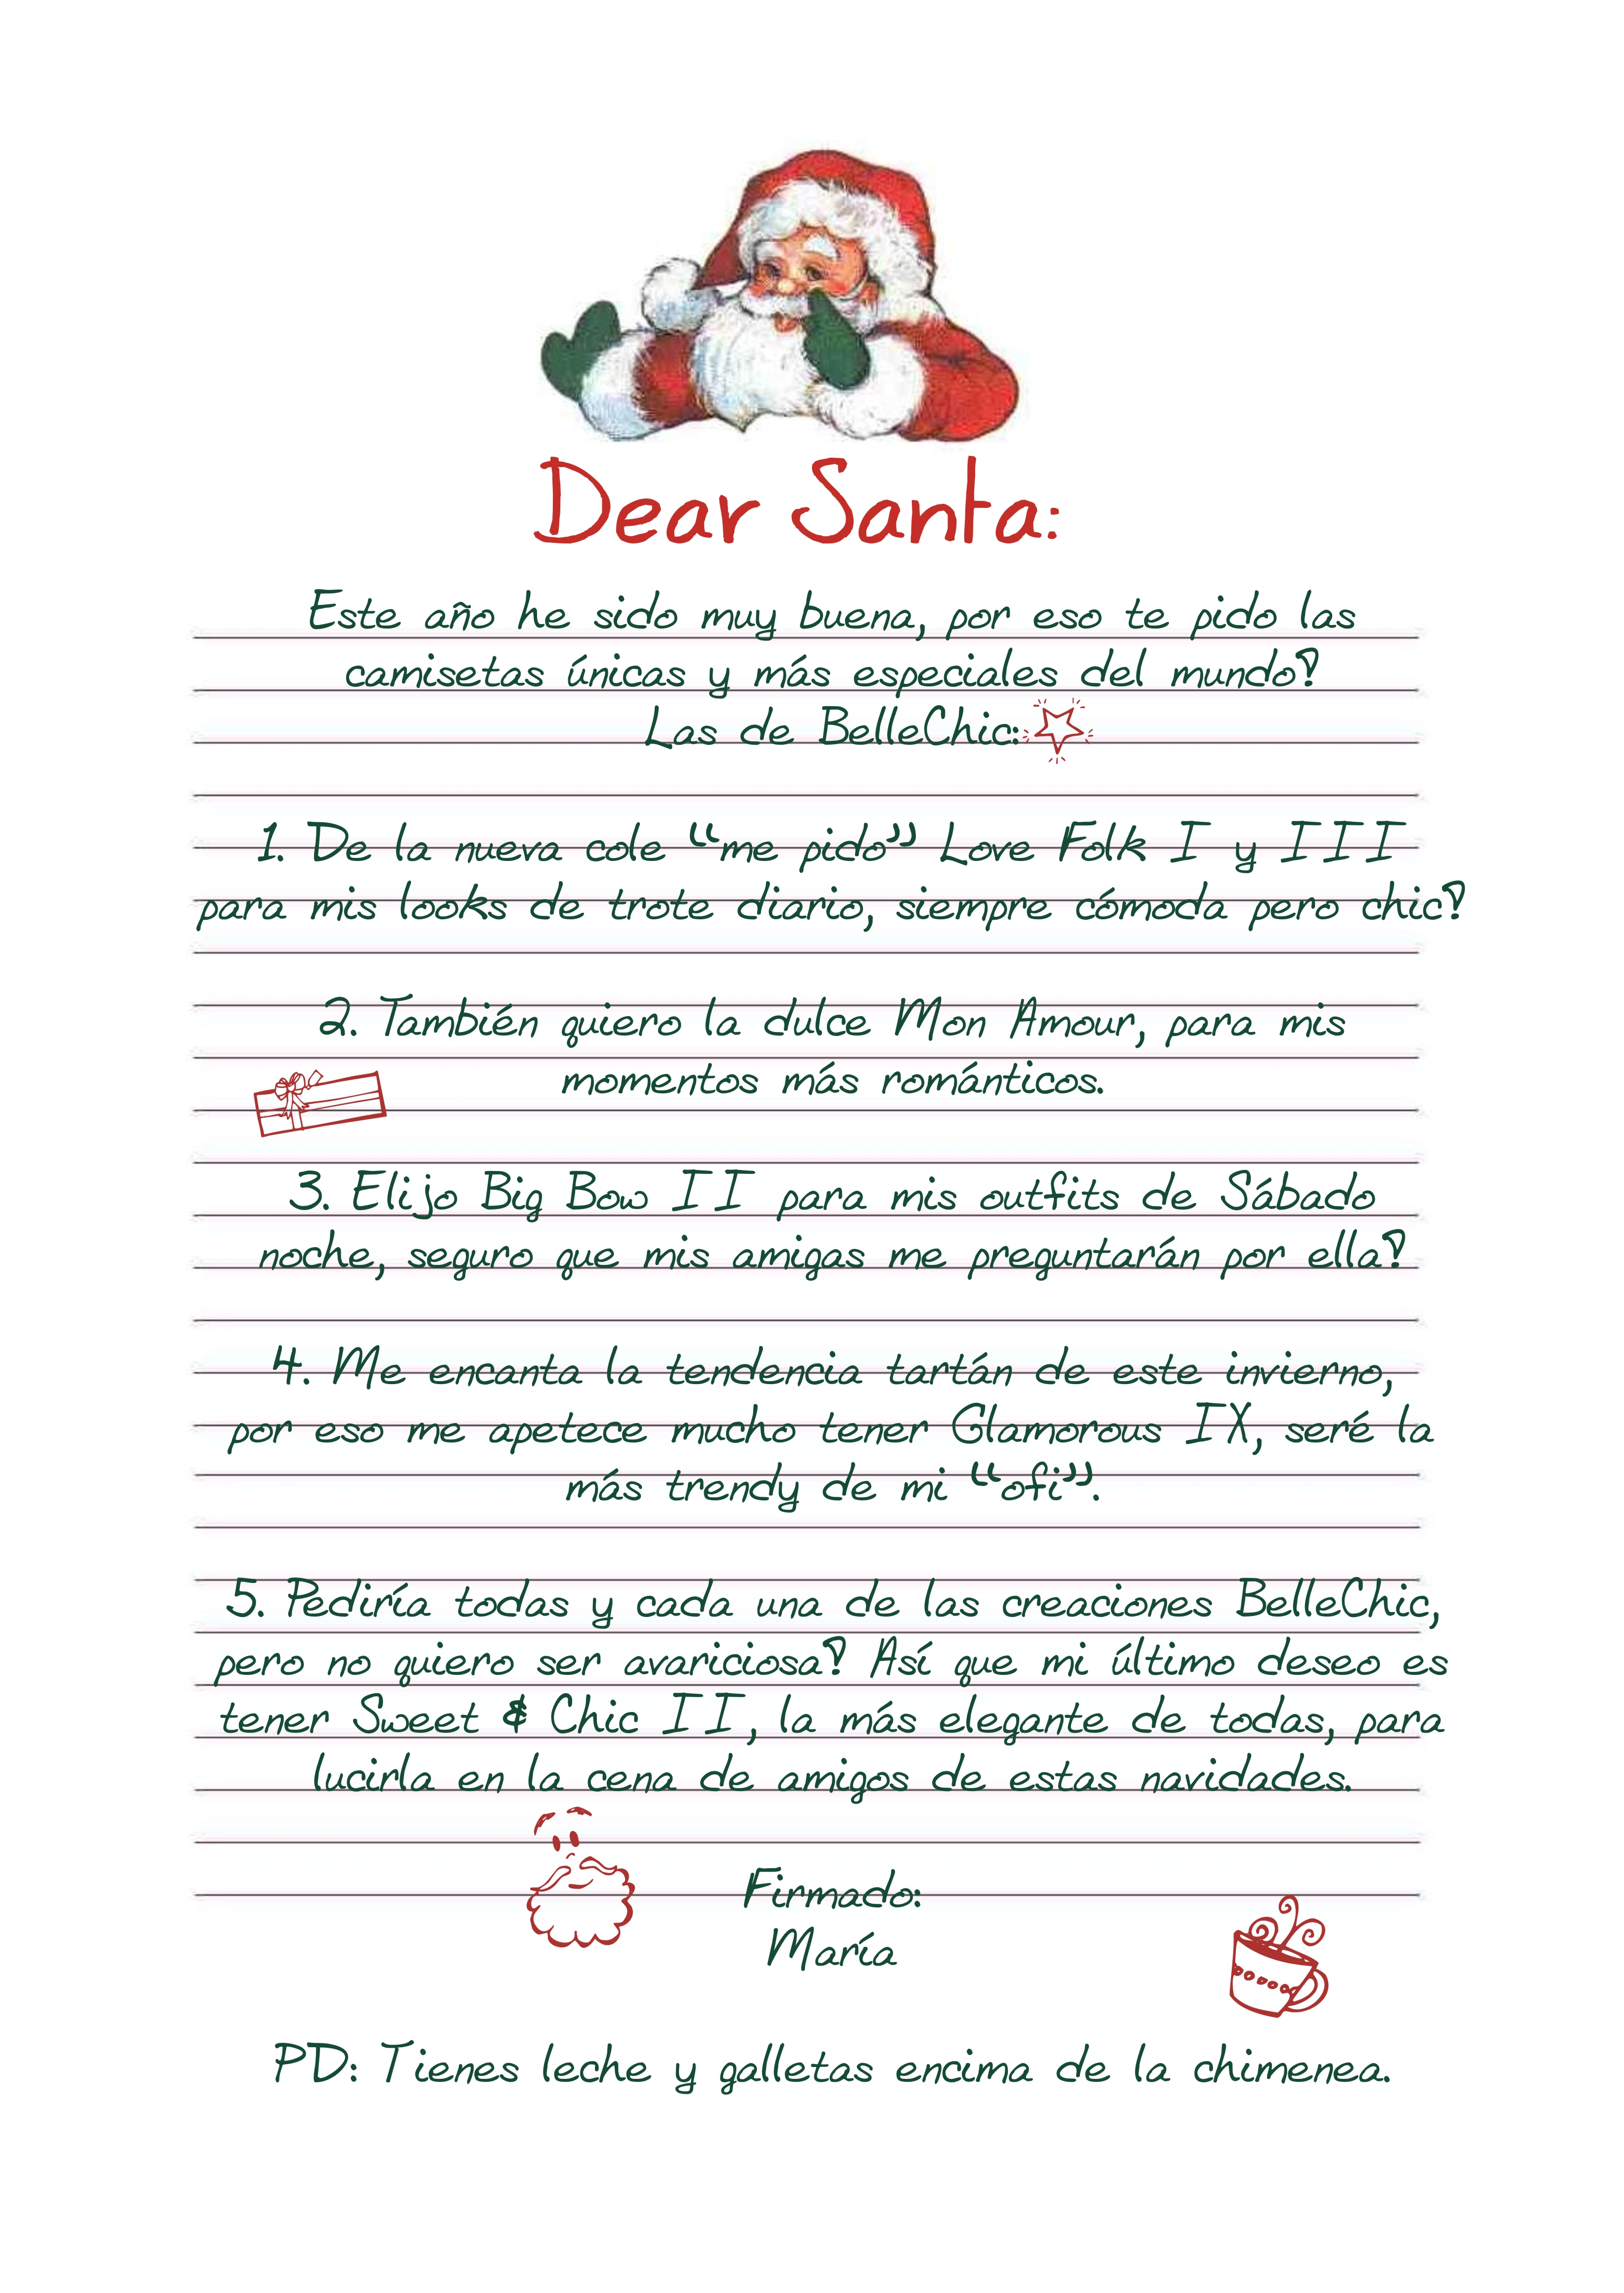 Dear Santa:
Este año he sido muy buena, por eso te pido las
camisetas únicas y más especiales del mundo!
Las de BelleChic:
1. De la nueva cole “me pido” Love Folk I y III
para mis looks de trote diario, siempre cómoda pero chic!
2. También quiero la dulce Mon Amour, para mis
momentos más románticos.
3. Elijo Big Bow II para mis outfits de Sábado
noche, seguro que mis amigas me preguntarán por ella!
4. Me encanta la tendencia tartán de este invierno,
por eso me apetece mucho tener Glamorous IX, seré la
más trendy de mi “ofi”.
5. Pediría todas y cada una de las creaciones BelleChic,
pero no quiero ser avariciosa! Así que mi último deseo es
tener Sweet & Chic II, la más elegante de todas, para
lucirla en la cena de amigos de estas navidades.
Firmado:
María
PD: Tienes leche y galletas encima de la chimenea.